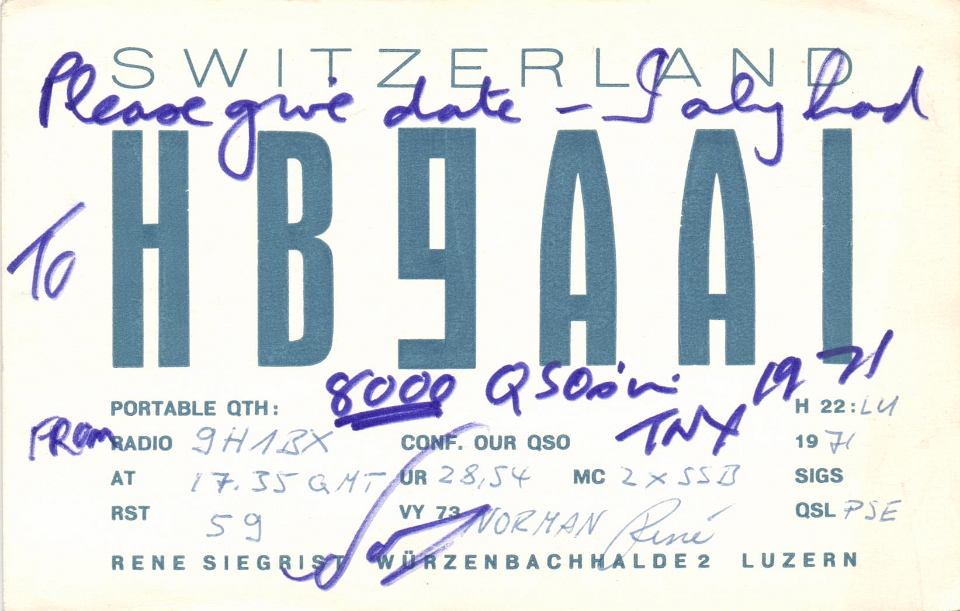 SWITZERLAND
Please give date - I only had
To HB9AAI
8000 QSOs in 1971
PORTABLE QTH: H 22: LU
FROM RADIO 9H1BX CONF. OUR QSO TNX 1971
AT 17.35 GMT UR 28,54 MC 2XSSB SIGS
RST 59 VY 73 NORMAN René QSL PSE
RENE SIEGRIST WÜRZENBACHHALDE 2 LUZERN